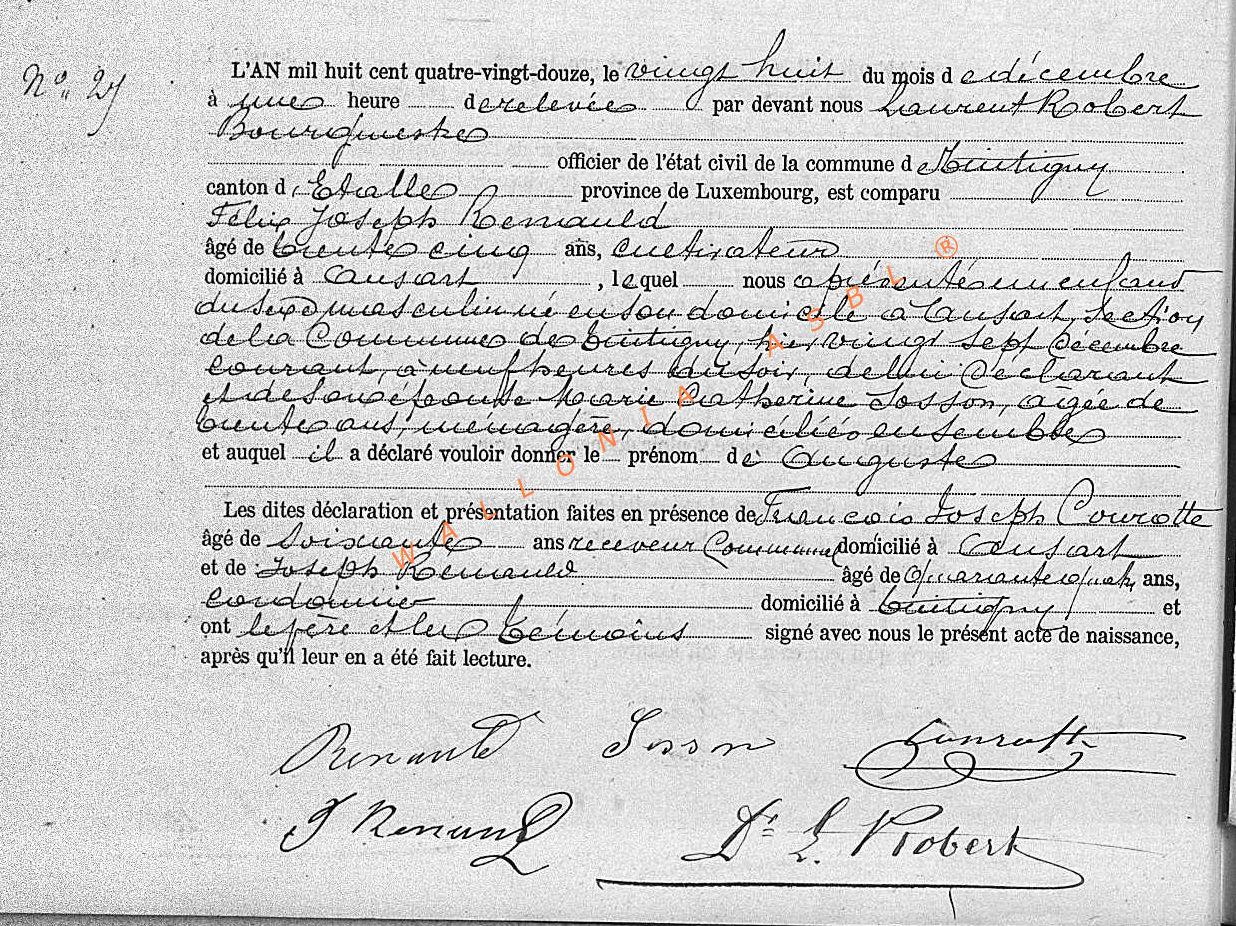 N° 27
L'AN mil huit cent quatre-vingt-douze, le vingt huit du mois de décembre
à une heure de relevée par devant nous Laurent Robert
Bourgmestre
officier de l'état civil de la commune de Tintigny
canton d'Etalle province de Luxembourg, est comparu
Félix Joseph Renauld
âgé de trente cinq ans, cultivateur
domicilié à Ansart, lequel nous a présenté un enfant
du sexe masculin né en son domicile à Ansart, section
de la Commune de Tintigny, hier vingt sept Décembre
courant, à neuf heures du soir, de lui Déclarant
et de son épouse Marie Catherine Josson, agée de
trente ans, ménagère, domiciliés ensemble
et auquel il a déclaré vouloir donner le prénom de Auguste
Les dites déclaration et présentation faites en présence de François Joseph
âgé de Soixante ans receveur Communal domicilié à Ansart
et de Joseph Renauld âgé de Quarante quatre ans,
cordonnier domicilié à Tintigny et
ont le père et les témoins signé avec nous le présent acte de naissance,
après qu'il leur en a été fait lecture.
Renauld
J Renauld Dr L. Robert
WALLONIA ASBL ®